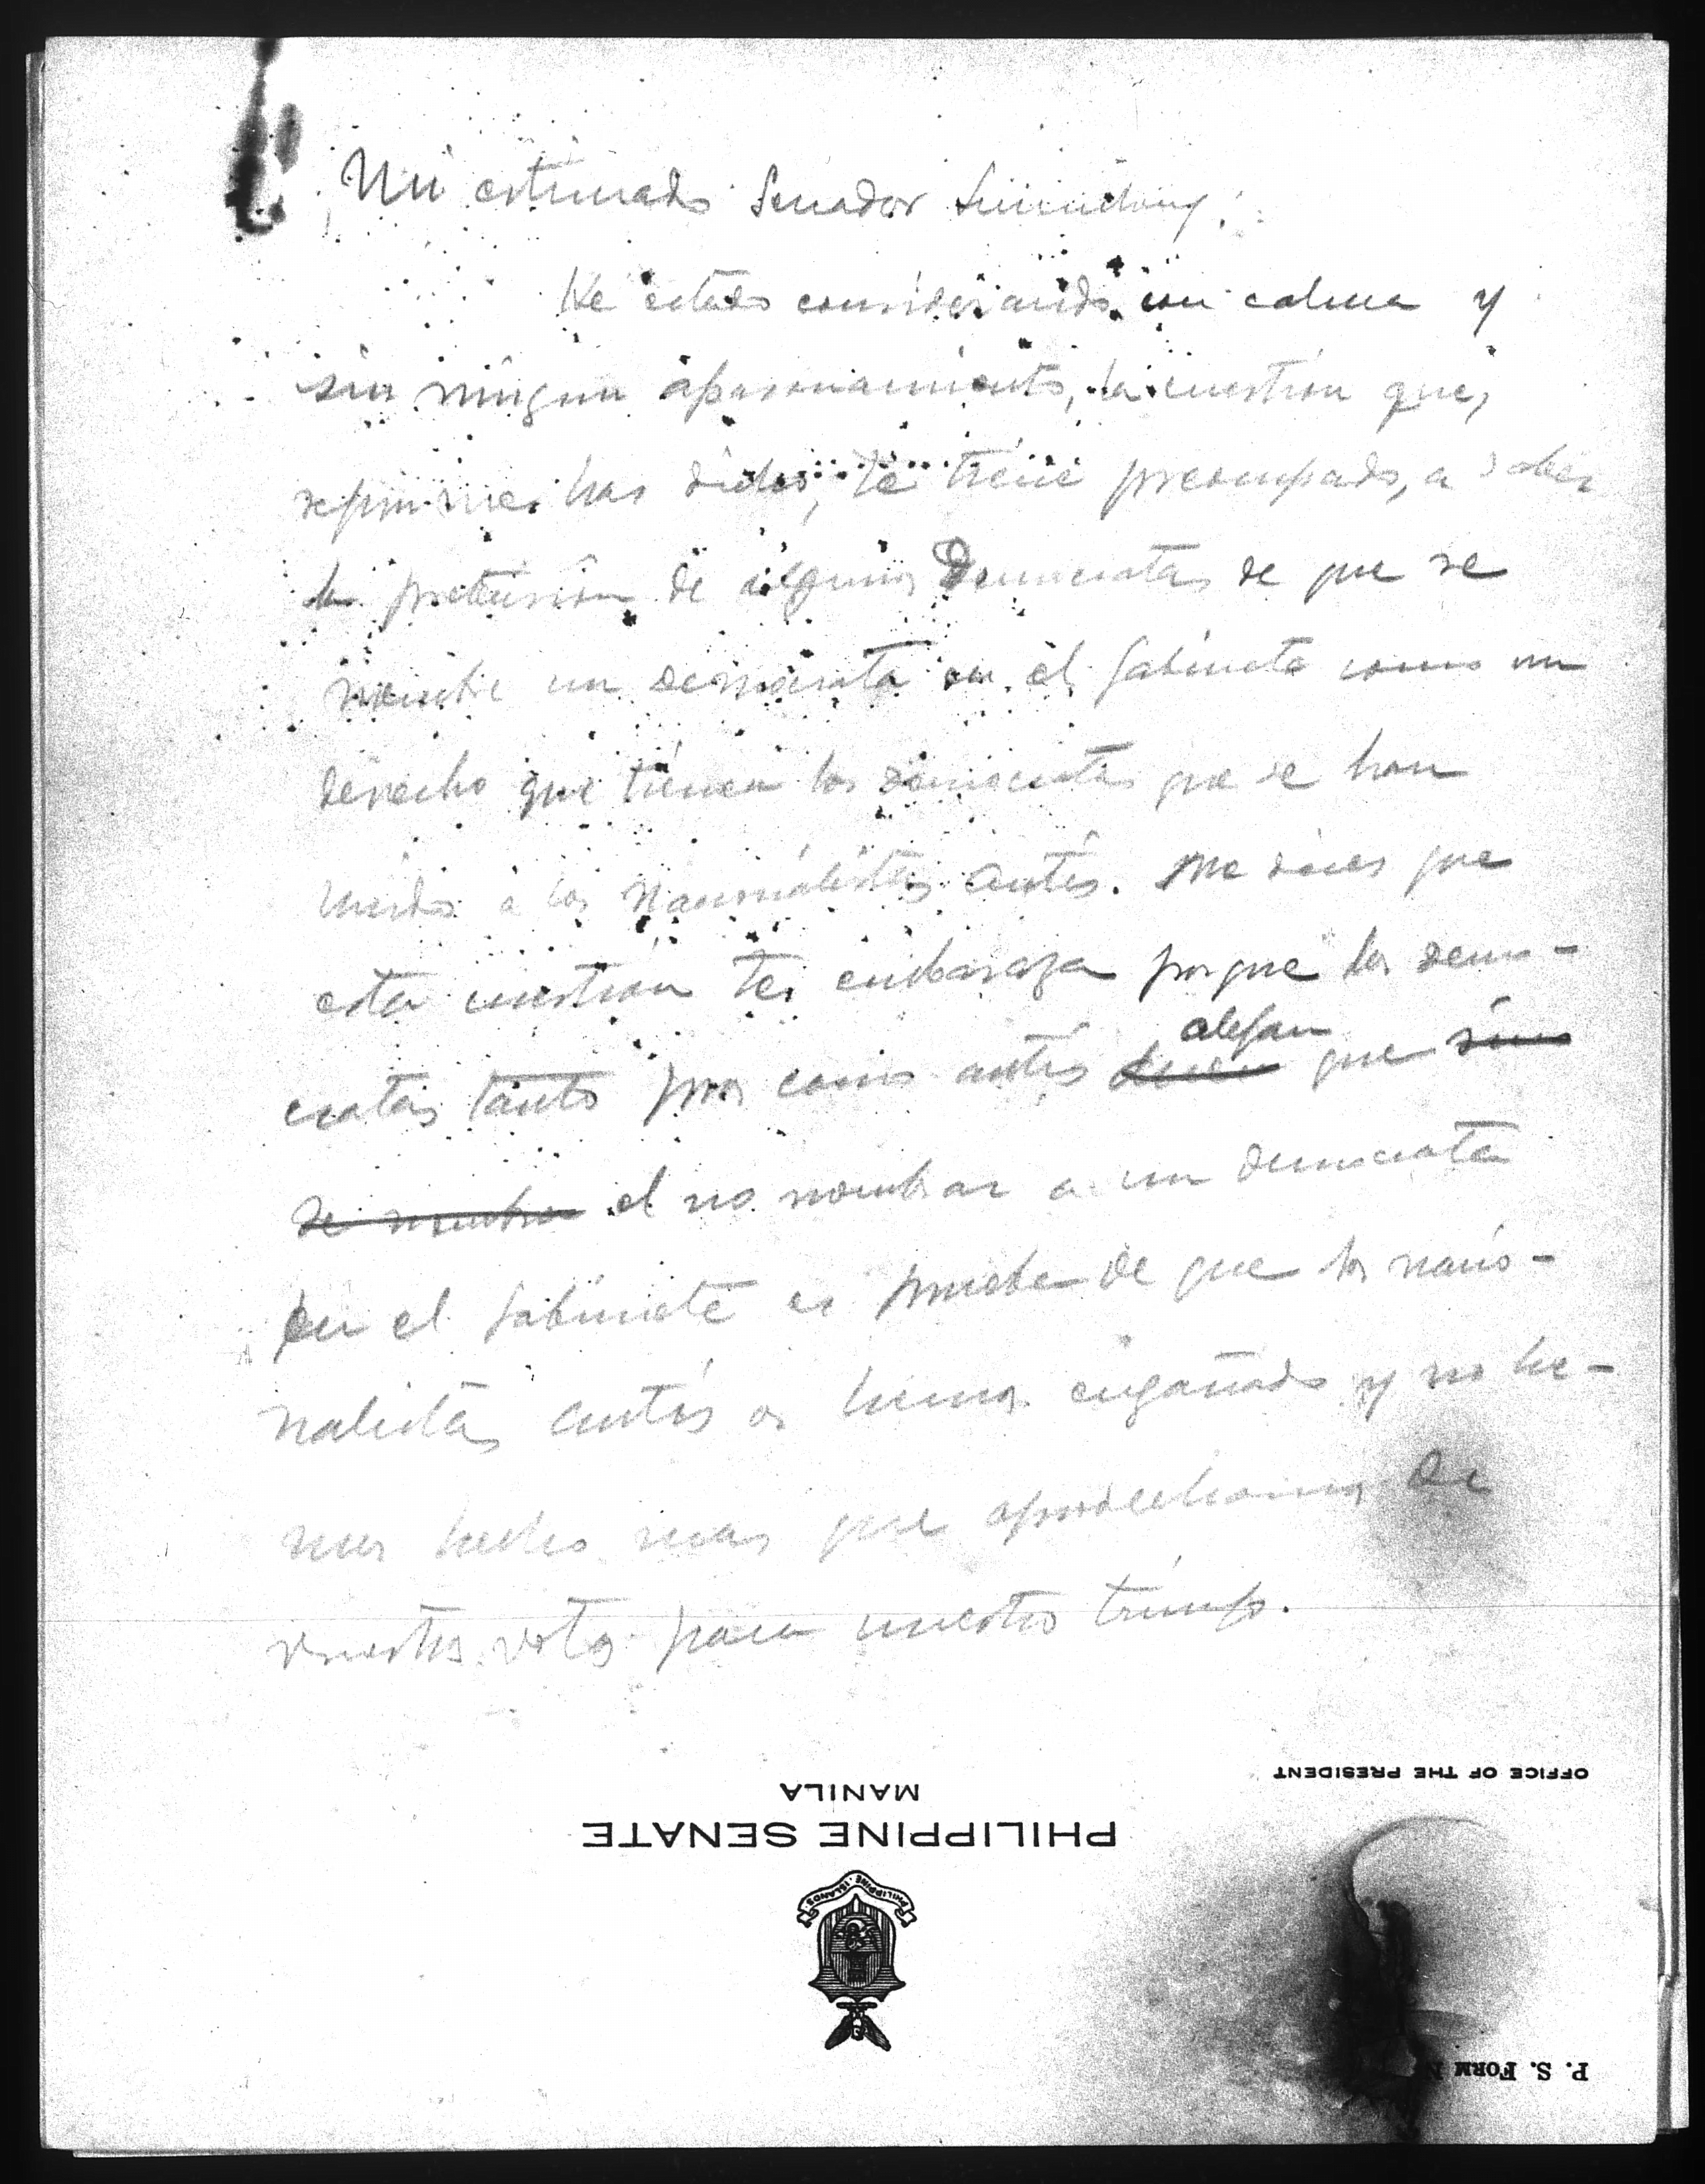 Mi estimado Senador Sumulong:
He estado considerando con calma y
sin ningun apasionamiento, la cuestión que,
segun me has dicho, te tiene preocupado, a saber
la pretensión de algunos Democratas de que se
nombre un democrata en el Gabinete como un
derecho que tienen los democratas que se han
unido a los Nacionalistas Antis. Me dices que
esta cuestion te embaraza porque los demo-
cratas tanto pros como antis dicen alegan que sino
se nombra el no nombrar a un democrata
en el Gabinete es prueba de que los nacio-
nalistas antis os hemos engañado y no he-
mos hecho mas que aprovecharnos de
vuestros votos para nuestro triunfo.
OFFICE OF THE PRESIDENT
MANILA
PHILIPPINE SENATE
PHILIPPINE ISLANDS
P. S. FORM